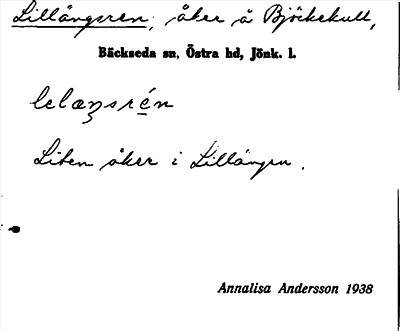 Lillängsren, åker å Björkekull,
Bäckseda sn, Östra hd, Jönk. l.
lelæŋsrén
Liten åker i Lillängen.
Annalisa Andersson 1938